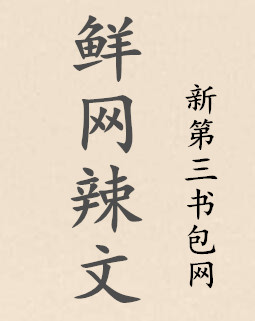 鲜网辣文
新第三书包网